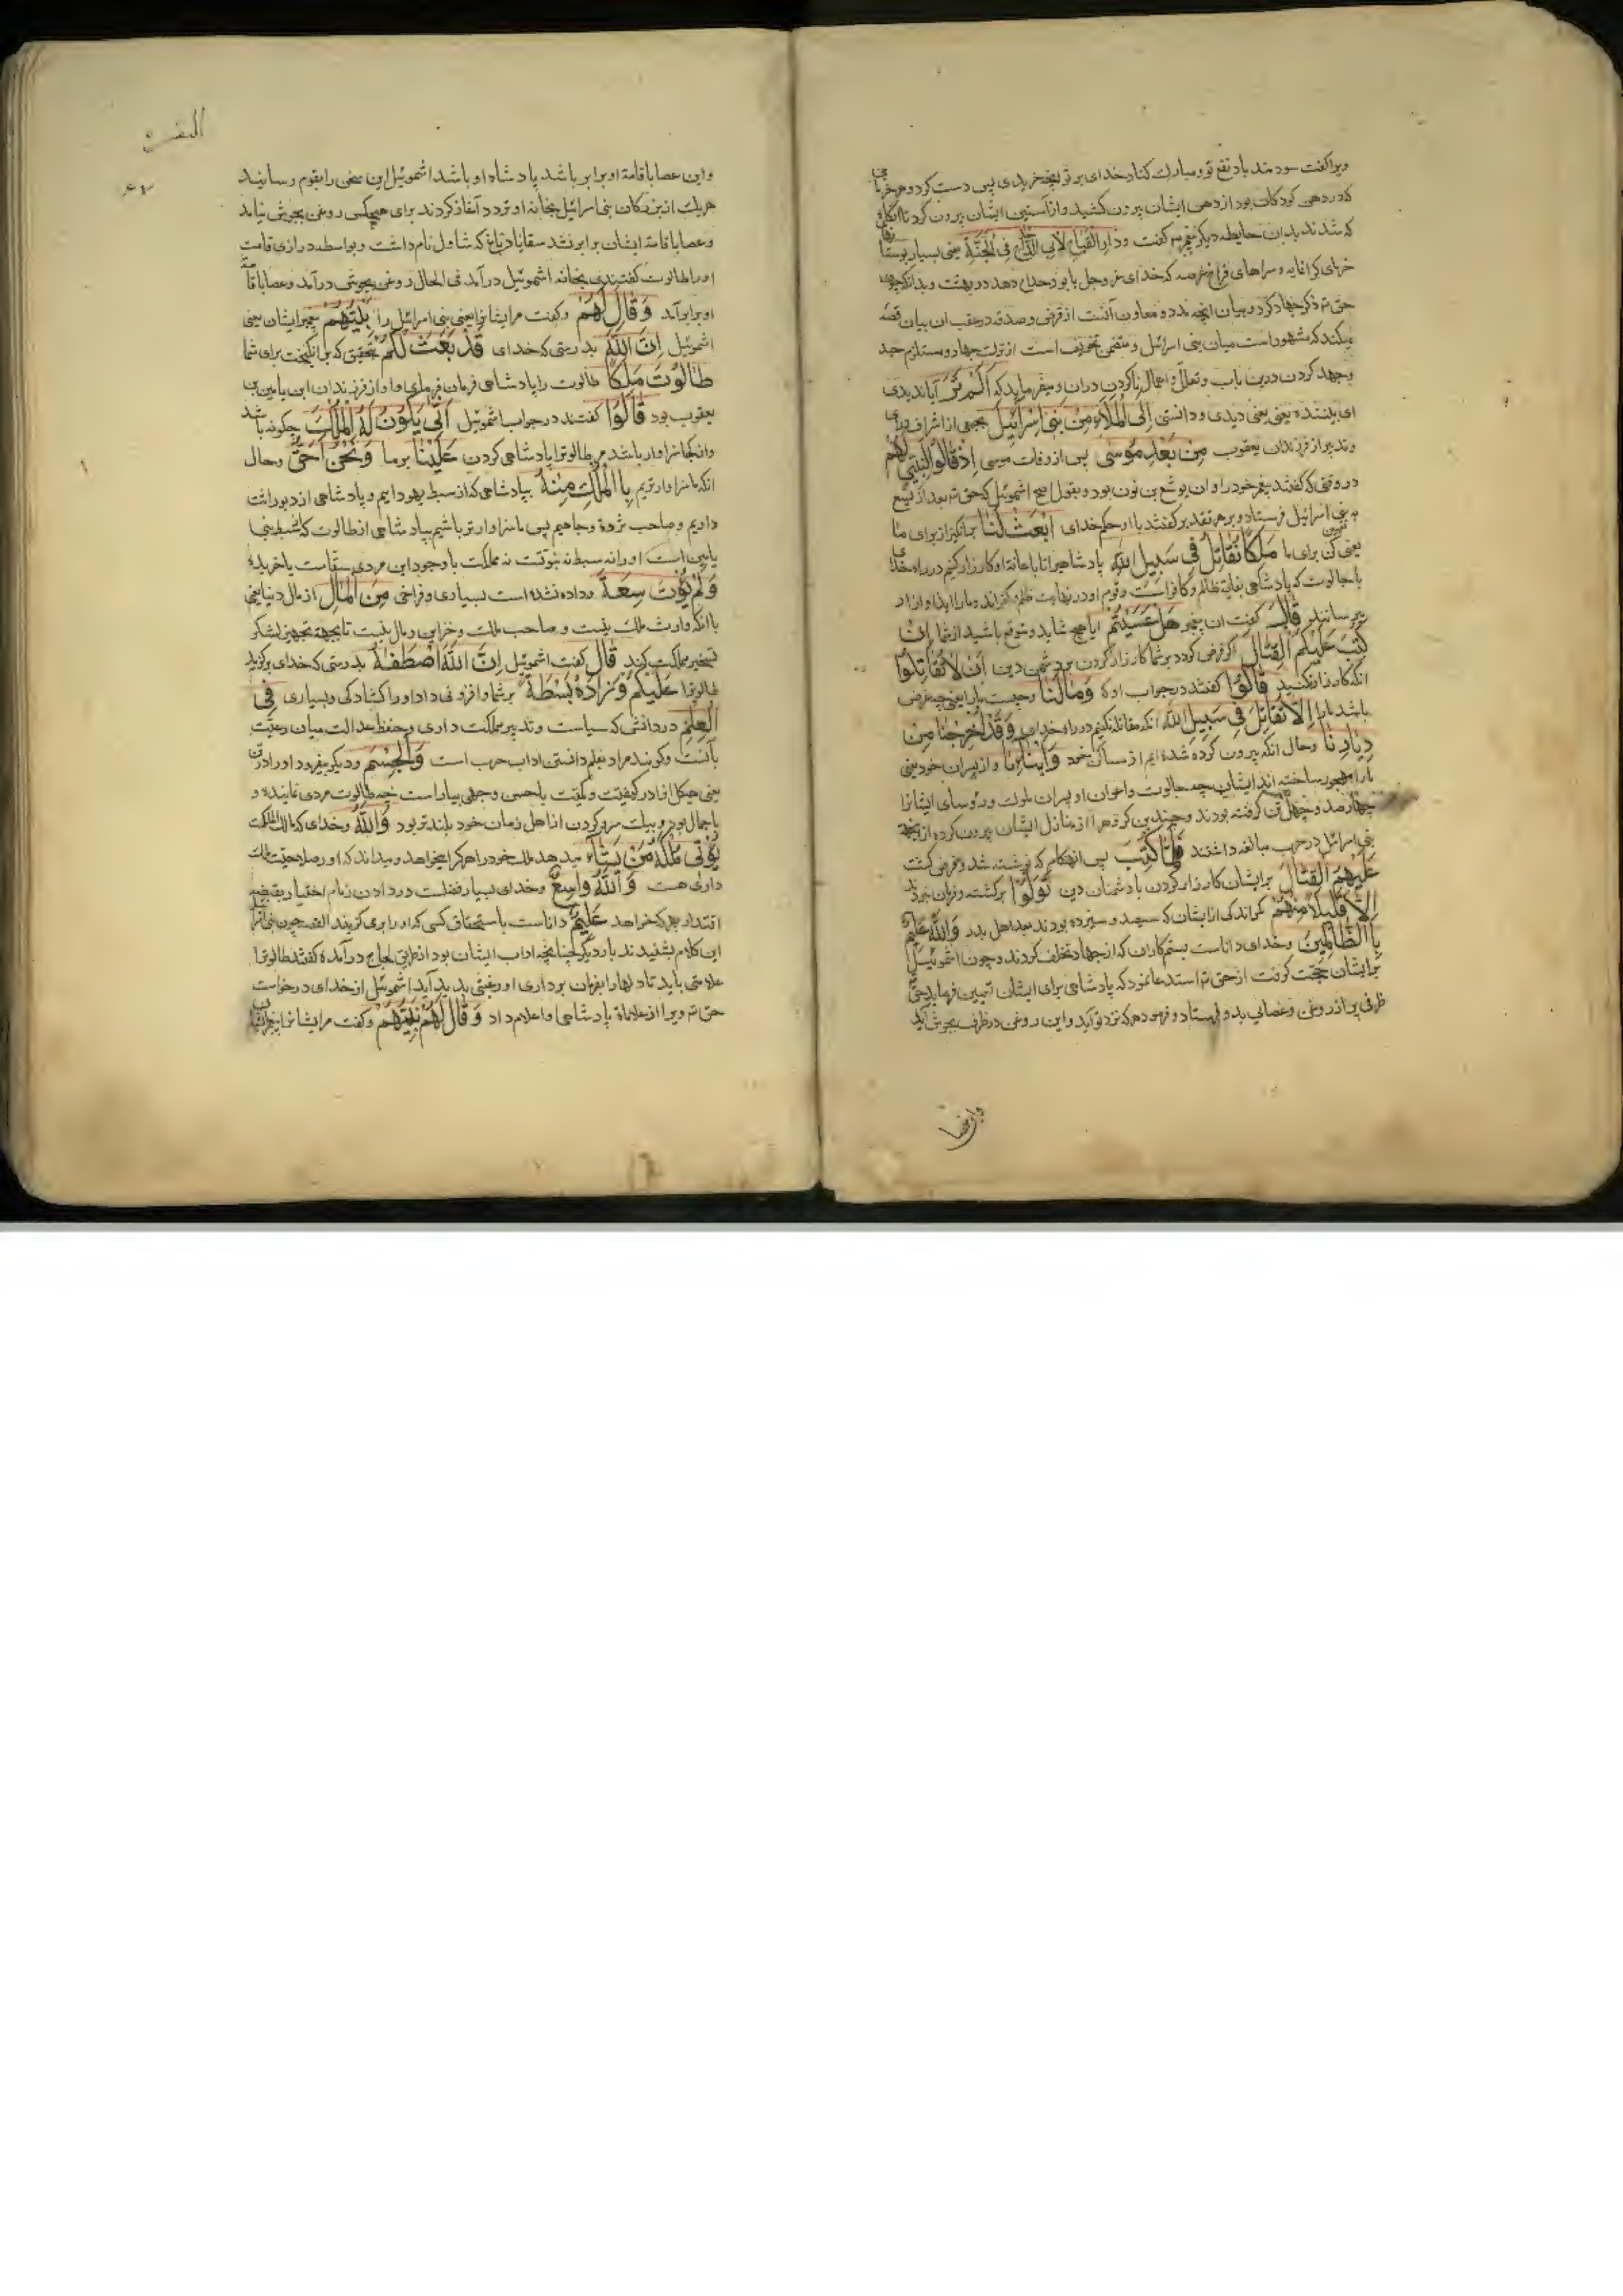 ویرا گفت سودمند باد نفع تو و مبارک کناد خدای بر تو آنچه خریدی پس دست کرد و هر خرما
که در دهن کودکان بود از دهن ایشان بیرون کشید و از آستین ایشان بیرون کرد تا آنگاه
که شدند بدان حایطه دیگر پیغمبر گفت
فی الجنة یعنی بسیار
که خدای عز و جل بابو دحداح دهد در بهشت و بدانکه چون
حق تم ذکر جهاد کرد و بیان آنچه مدد و معاون آنست از قرض و صدقه در عقب آن بیان قصه
میکند که مشهور است میان بنی اسرائیل و متضمن تخویف است از ترک جهاد و مستلزم جد
و جهد کردن درین باب و تعلل و اهمال ناکردن دران و میفرماید که أَلَمْ تَرَ آیا ندیدی
ای بیننده یعنی دیدی و دانستی إِلَى الْمَلَاءِ مِنْ بَنِی إِسْرَائِیلَ بجمعی از اشراف
از فرزندان یعقوب مِنْ بَعْدِ مُوسَى پس از وفات موسی إِذْ قَالُوا لِنَبِیٍّ لَهُمْ
در وقتی که گفتند پیغمبر خود را و آن یوشع بن نون بود و بقول اصح اشموئیل که حق تم بعد از یوشع
به بنی اسرائیل فرستاد و بر هر تقدیر گفتند با او حکم خدای ابْعَثْ لَنَا برانگیز از برای ما
یعنی تعیین کن برای ما مَلِکًا نُقَاتِلْ فِی سَبِیلِ اللّٰهِ پادشاهیرا تا باعانة او کارزار کنیم در راه خدای
با جالوت که پادشاهی بغایة ظالم و کافراست و قوم او در نهایت ظلم و کفراند و ما را ایذا و آزار
میرسانند قَالَ گفت آن پیغمبر هَلْ عَسَیْتُمْ آیا هیچ شاید و متوقع باشید از شما إِنْ
کُتِبَ عَلَیْکُمُ الْقِتَالُ اگر فرض گردد بر شما کارزار کردن بر دشمن دین أَنْ لَا تُقَاتِلُوا
آنکه کارزار نکنید قَالُوا گفتند در جواب او که وَمَا لَنَا و چیست ما را یعنی چه غرض
باشد ما را إِلَّا نُقَاتِلَ فِی سَبِیلِ اللّٰهِ آنکه مقاتله نکنیم در راه خدای وَقَدْ أُخْرِجْنَا مِنْ
دِیَارِنَا و حال آنکه بیرون کرده شده ایم از مساکن خود وَأَبْنَائِنَا و از پسران خود یعنی
ما را مهجور ساخته اند ایشان چه جالوت و اعوان او پسران ملوک و رؤسای ایشانرا
چهارصد و چهل تن گرفته بودند و چندین کس دیگر را از منازل ایشان بیرون کرده از
بنی اسرائیل در حرب مبالغه داشتند فَلَمَّا کُتِبَ پس آنهنگام که نوشته شد و فرض گشت
عَلَیْهِمُ الْقِتَالُ بر ایشان کارزار کردن با دشمنان دین تَوَلَّوْا برگشته و فرمان نبردند
إِلَّا قَلِیلًا مِنْهُمْ مگر اندکی از ایشان که سیصد و سیزده بودند بعدد اهل بدر وَاللّٰهُ عَلِیمٌ
بِالظَّالِمِینَ و خدای داناست بستمکاران که از جهاد تخلف کردند و چون اشموئیل
بر ایشان حجت گرفت از حق تم استدعا نمود که پادشاهی برای ایشان تعیین فرماید حق تم
ظرفی پر از روغن و عصائی بدو فرستاد و فرمود هر که نزد تو آید و این روغن در ظرف بجوش آید
واین عصا
البقرة
واین عصا با قامة او برابر باشد پادشاه او باشد اشموئیل این سخن را بقوم رسانید
هر یک از بزرگان بنی اسرائیل بخانه او تردد آغاز کردند برای هیچکس روغن بجوش نیامد
و عصا با قامة ایشان برابر نشد سقا یا دباغ که شاول نام داشت و بواسطه درازی قامت
او را طالوت گفتندی بخانه اشموئیل درآمد فی الحال روغن بجوش درآمد و عصا با قامة
او برابر آمد وَقَالَ لَهُمْ و گفت مر ایشانرا یعنی بنی اسرائیل را نَبِیُّهُمْ پیغمبر ایشان یعنی
اشموئیل إِنَّ اللّٰهَ بدرستی که خدای قَدْ بَعَثَ لَکُمْ بتحقیق که برانگیخت برای شما
طَالُوتَ مَلِکًا طالوت را پادشاهی فرمان فرمای و او از فرزندان ابن یامین بن
یعقوب بود قَالُوا گفتند در جواب اشموئیل أَنَّى یَکُونُ لَهُ الْمُلْکُ چگونه باشد
و از کجا سزاوار باشد مر طالوترا پادشاهی کردن عَلَیْنَا بر ما وَنَحْنُ أَحَقُّ و حال
آنکه ما سزاوارتریم بِالْمُلْکِ مِنْهُ بپادشاهی که از سبط یهودایم و پادشاهی از و بوراثت
داریم و صاحب ثروة و جاهیم پس ما سزاوارتر باشیم بپادشاهی از طالوت که سبط بنی
یامین است او را نه سبط نبوتست نه مملکت با وجود این مردی سقاست یا خربنده
وَلَمْ یُؤْتَ سَعَةً و داده نشده است بسیاری و فراخی مِنَ الْمَالِ از مال دنیا یعنی
با آنکه وارث ملک نیست و صاحب ملک و خزاین و مال نیست تا بجهة تجهیز لشکر
تسخیر مملکت کند قَالَ گفت اشموئیل إِنَّ اللّٰهَ اصْطَفٰهُ بدرستی که خدای برگزید
طالوترا عَلَیْکُمْ وَزَادَهُ بَسْطَةً بر شما و افزونی داد او را گشادگی و بسیاری فِی
الْعِلْمِ در دانش که سیاست و تدبیر مملکت داری و حفظ عدالت میان رعیت
بآنست و گویند مراد بعلم دانستن آداب حرب است وَالْجِسْمِ و دیگر بیفزود او را در تن
یعنی هیکل او در کیفیت و کمیت با حسن و جهی بیاراست چه طالوت مردی نماینده و
با جمال بود و بیک سر و گردن از اهل زمان خود بلندتر بود وَاللّٰهُ و خدای که مالک الملکت
یُؤْتِی مُلْکَهُ مَنْ یَشَاءُ میدهد ملک خود را هر کرا میخواهد و میداند که او را صلاحیت ملک
داری هست وَاللّٰهُ وَاسِعٌ و خدای بسیار فضلست در دادن زمام اختیار بقبضه
اقتدار هر که خواهد عَلِیمٌ داناست باستحقاق کسی که او را بر می گزیند القصه چون بنی اسرائیل
این کلام بشنیدند بار دیگر چنانچه آداب ایشان بود از طریق لجاج درآمده گفتند طالوترا
علامتی باید تا دلهارا بفرمان برداری او رغبتی پدید آید اشموئیل از خدای درخواست
حق تم ویرا از علامة پادشاهی او اعلام داد وَقَالَ لَهُمْ نَبِیُّهُمْ و گفت مر ایشانرا پیغمبر ایشان